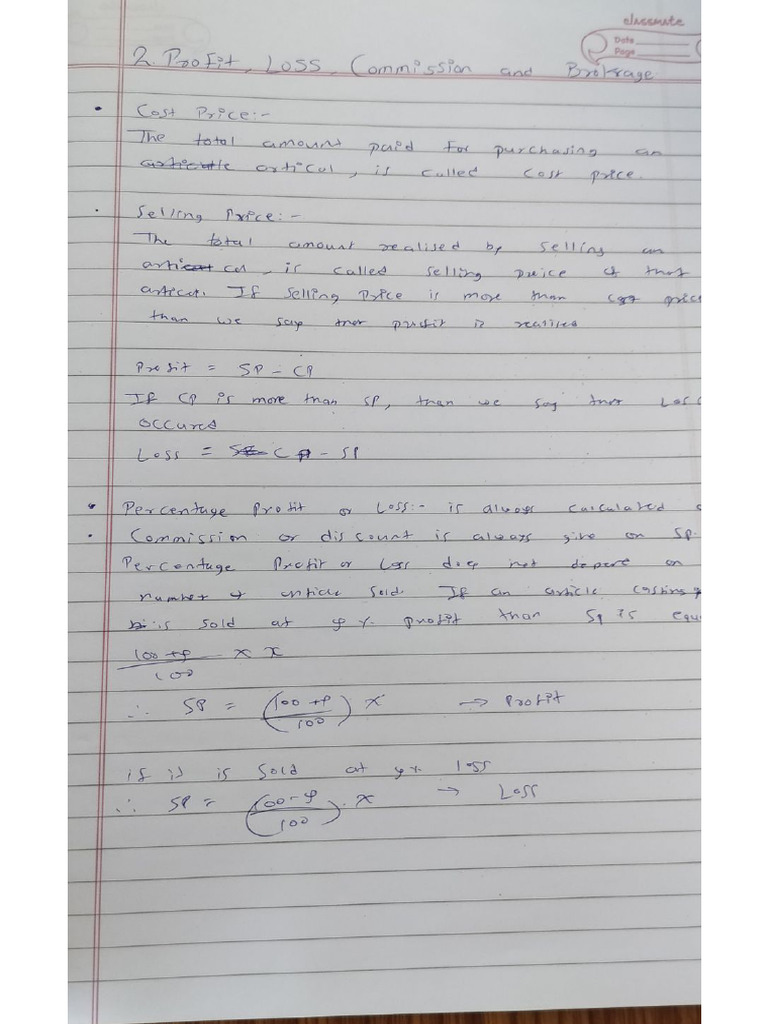 classmate
Date
Page
2. Profit, Loss, Commission and Brokrage
Cost Price:-
The total amount paid for purchasing an
artical, is called cost price.
Selling Price:-
The total amount realised by selling an
artical, is called selling price of that
artical. If selling Price is more than cost price
than we say that profit is realised
Profit = SP - CP
If CP is more than SP, than we say that Loss
occured
Loss = CP - SP
Percentage Profit or Loss:- is always calculated
Commission or discount is always give on SP.
Percentage Profit or Loss does not depend on
number of article sold. If an article costing
is sold at y% profit than SP is equ
100+y/100 × x
∴ SP = (100+y/100) x → Profit
if it is sold at y% loss
∴ SP = (100-y/100) . x → Loss